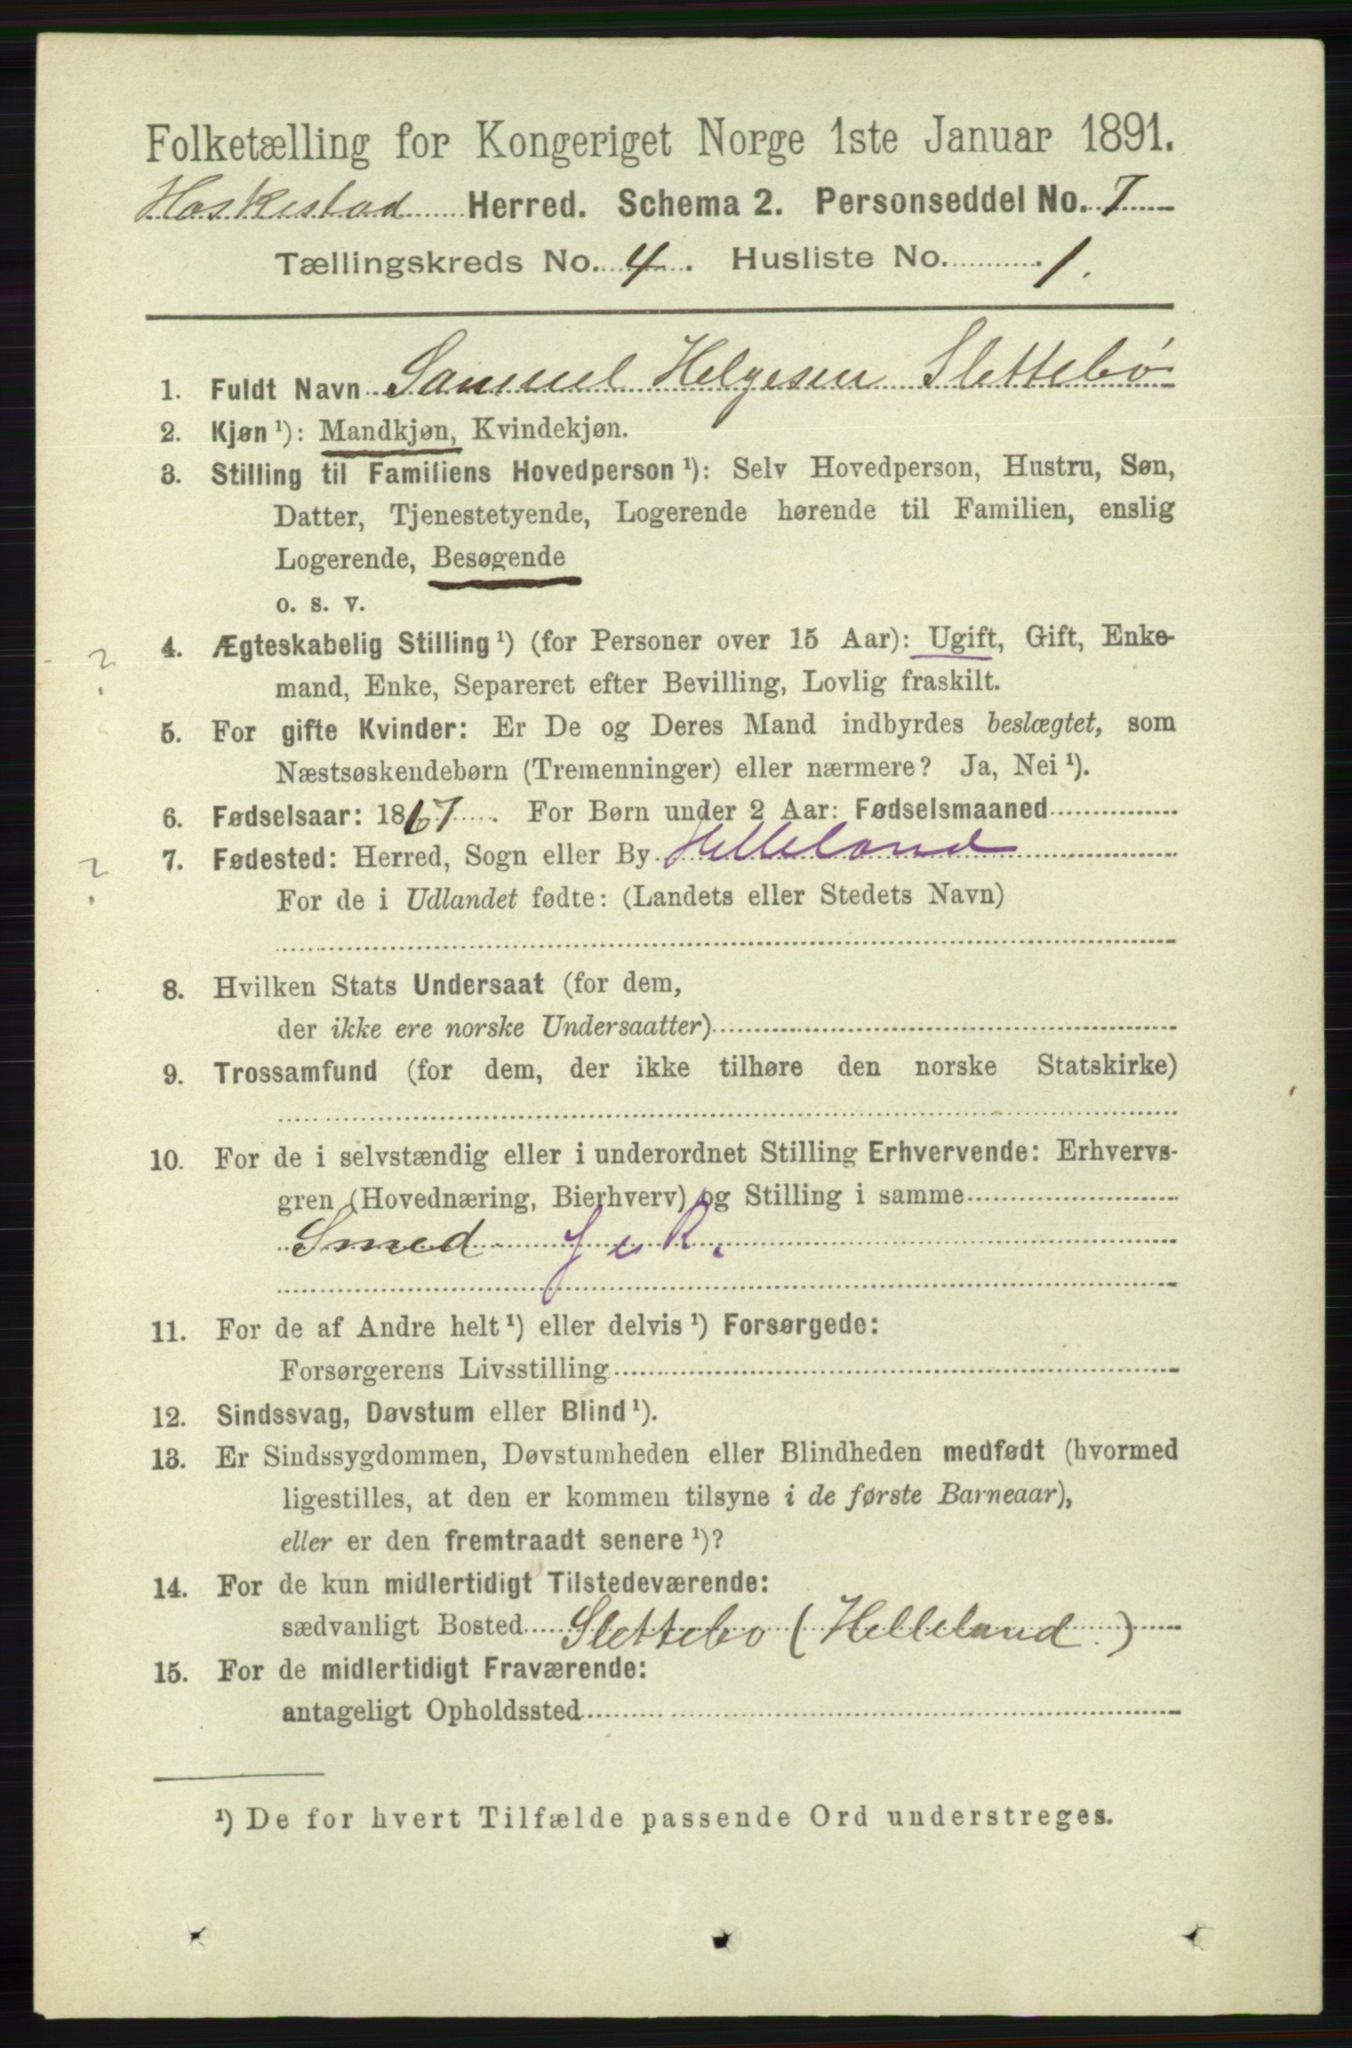 Folketælling for Kongeriget Norge 1ste Januar 1891.
Heskestad Herred. Schema 2. Personseddel No. 7
Tællingskreds No. 4. Husliste No. 1.
1. Fuldt Navn Samuel Helgesen Slettebø
2. Kjøn ¹): Mandkjøn, Kvindekjøn.
3. Stilling til Familiens Hovedperson ¹): Selv Hovedperson, Hustru, Søn,
Datter, Tjenestetyende, Logerende hørende til Familien, enslig
Logerende, Besøgende
o. s. v.
? 4. Ægteskabelig Stilling ¹) (for Personer over 15 Aar): Ugift, Gift, Enke-
mand, Enke, Separeret efter Bevilling, Lovlig fraskilt.
5. For gifte Kvinder: Er De og Deres Mand indbyrdes beslægtet, som
Næstsøskendebørn (Tremenninger) eller nærmere? Ja, Nei ¹).
6. Fødselsaar: 1867. For Børn under 2 Aar: Fødselsmaaned
? 7. Fødested: Herred, Sogn eller By Helleland
For de i Udlandet fødte: (Landets eller Stedets Navn)
8. Hvilken Stats Undersaat (for dem,
der ikke ere norske Undersaatter)
9. Trossamfund (for dem, der ikke tilhøre den norske Statskirke)
10. For de i selvstændig eller i underordnet Stilling Erhvervende: Erhvervs-
gren (Hovednæring, Bierhverv) og Stilling i samme
Smed
11. For de af Andre helt ¹) eller delvis ¹) Forsørgede:
Forsørgerens Livsstilling
12. Sindssvag, Døvstum eller Blind ¹).
13. Er Sindssygdommen, Døvstumheden eller Blindheden medfødt (hvormed
ligestilles, at den er kommen tilsyne i de første Barneaar),
eller er den fremtraadt senere ¹)?
14. For de kun midlertidigt Tilstedeværende:
sædvanligt Bosted Slettebo (Helleland.)
15. For de midlertidigt Fraværende:
antageligt Opholdssted
¹) De for hvert Tilfælde passende Ord understreges.